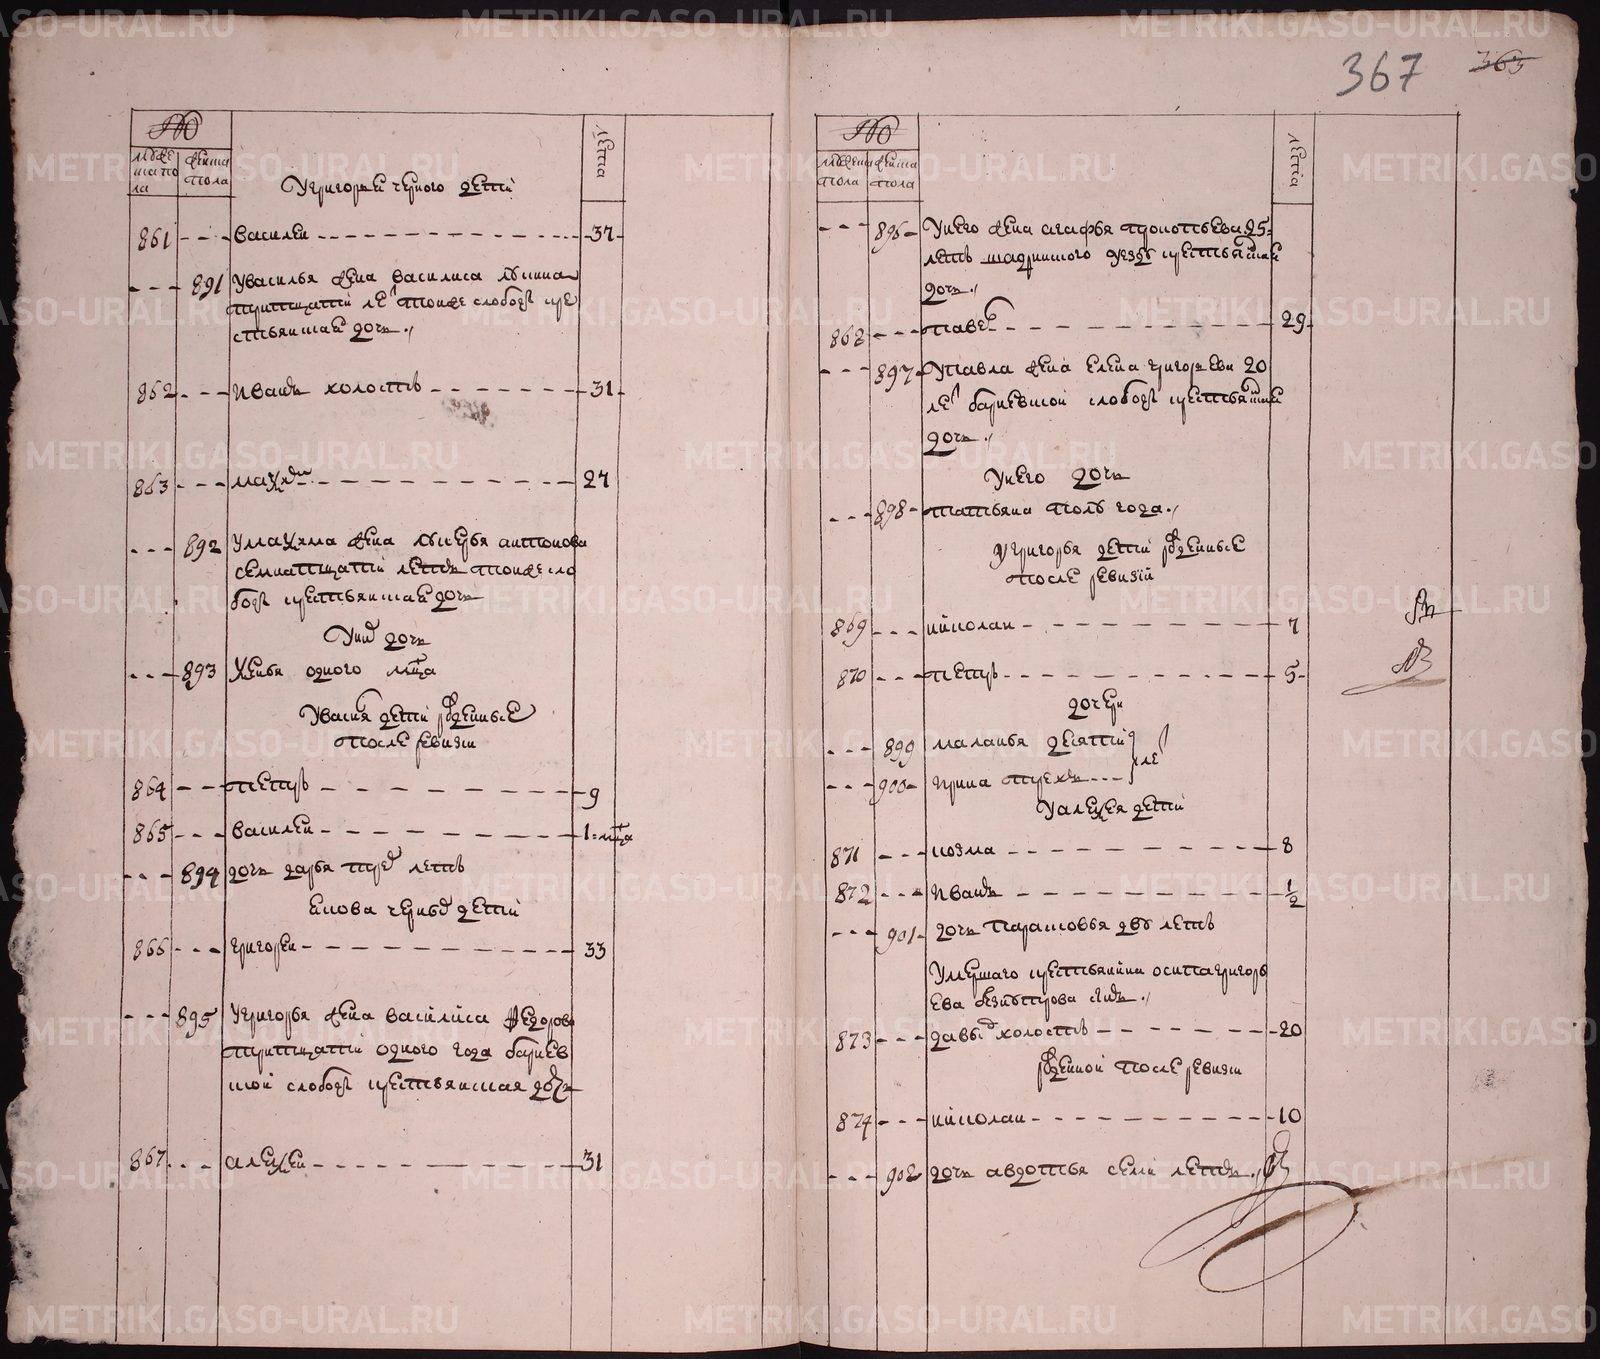 367
363
№
муже
ска по
ла
женска
пола
лета
У григорья черного дети
861 василеи 37
891 У василья жена василиса
тритцати ле тоиже слобод кре
стьянская дочь
862 иван холостъ 31
863 27
892 У максима жена антонова
семнатцати лет тоиже сло
бод крестьянская дочь
У них дочь
893 одного мца
У дети рожденные
после ревизи
864 петръ 9
865 василеи 1 мца
894 дочь дарья трех летъ
черных дети
866 григореи 33
895 У григорья жена василиса федорова
тритцати одного года барнев
ской слобод крестьянская дочь
867 алексеи 31
№
мужеска
пола
женска
пола
лета
896 У него жена агафья прокопьева 25
летъ шадринского уезду крестьянская
дочь
868 павел 29
897 У павла жена елена григорьева 20
ле барневской слобод крестьянская
дочь
У него дочь
898 татьяна полъ года
У григорья дети рожденные
после ревизии
869 никола 7
870 петръ 5
дочери
899 маланья десяти
900 ирина трех ле
У алексея дети
871 козма 8
872 иван 1/2
901 дочь парасковья дву летъ
Умершаго крестьянина осипа григорь
ева сын
873 давыд холостъ 20
рожденной после ревизи
874 никола 10
902 дочь авдотья семи лет